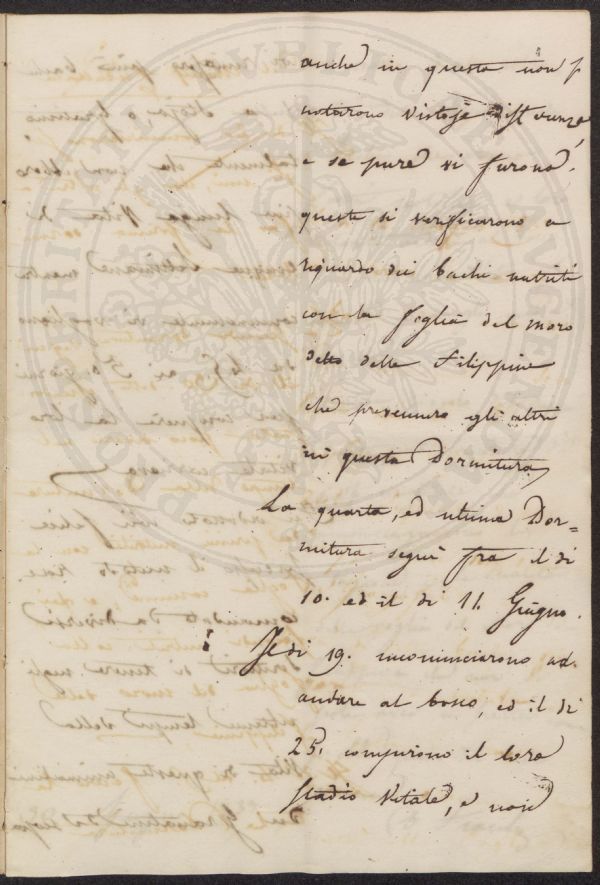 anche in questa non p
notarono vistose differenze
e se pure vi furono,
queste si verificarono a
riguardo dei bachi nutriti
con la foglia del moro
detto delle Filippine
che prevennero gli altri
in questa Dormitura
La quarta, ed ultima Dor=
mitura seguì fra il di
10. ed il di 11. Giugno.
Il di 19. incominciarono ad
andare al bosco, ed il di
25. compirono il loro
stadio vitale, e